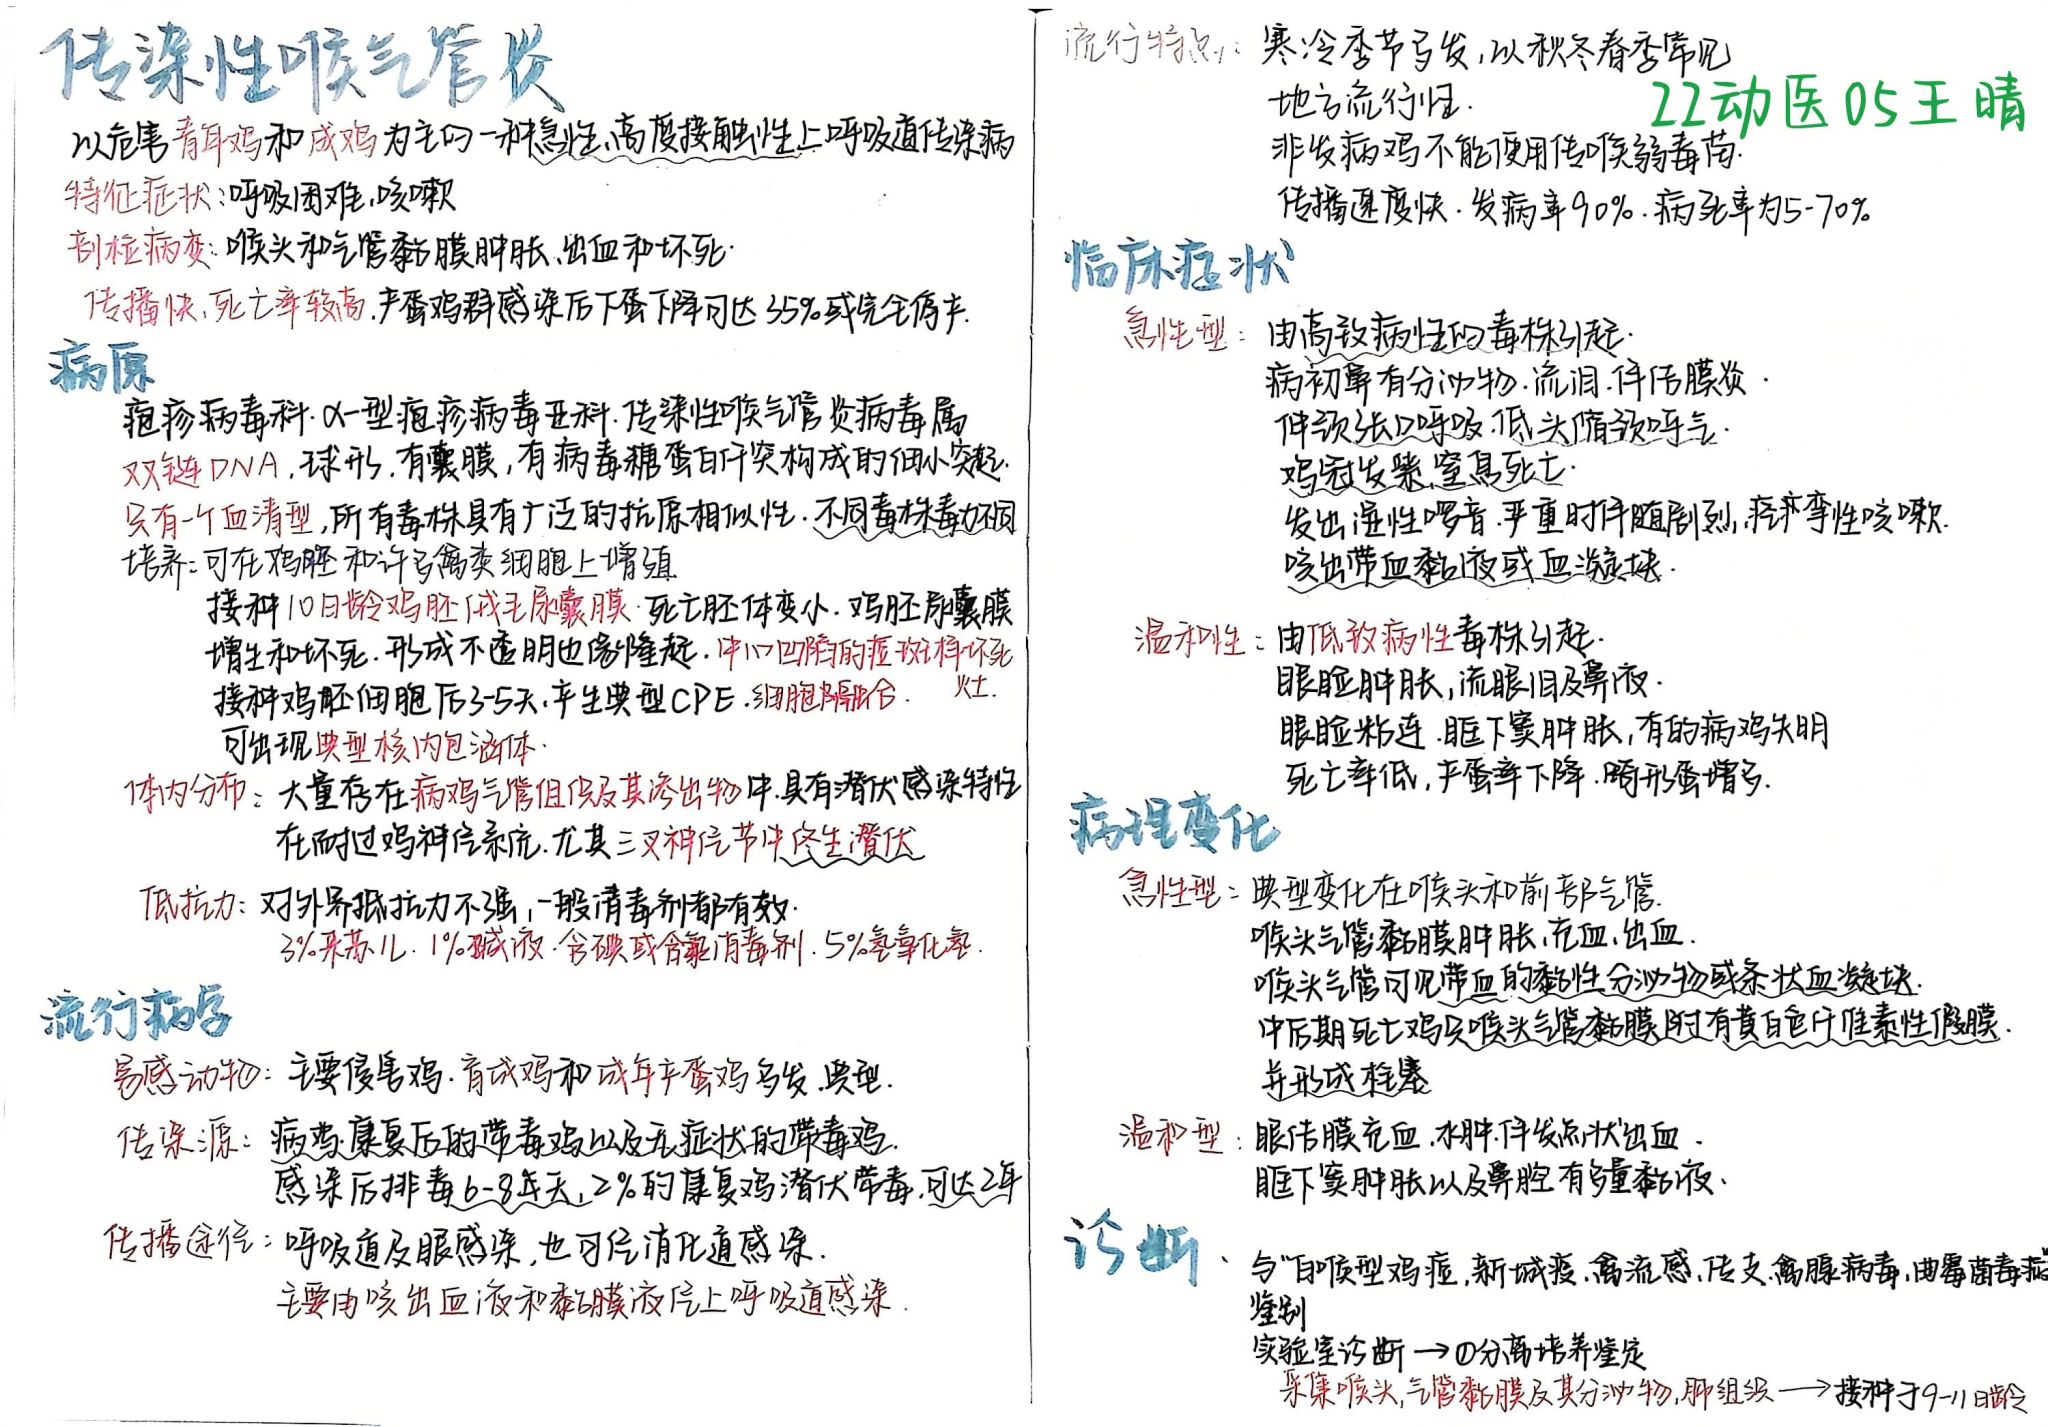 传染性喉气管炎
以危害青年鸡和成鸡为主的一种急性、高度接触性上呼吸道传染病
特征症状:呼吸困难、咳嗽
剖检病变:喉头和气管黏膜肿胀、出血和坏死.
传播快、死亡率较高.产蛋鸡群感染后下蛋下降可达35%或完全停产.
病原
疱疹病毒科.α-型疱疹病毒亚科.传染性喉气管炎病毒属
双链DNA、球形、有囊膜,有病毒糖蛋白纤突构成的细小突起.
只有一个血清型,所有毒株具有广泛的抗原相似性.不同毒株毒力不同
培养:可在鸡胚和许多禽类细胞上增殖
接种10日龄鸡胚绒毛尿囊膜.死亡胚体变小.鸡胚尿囊膜
增生和坏死.形成不透明边缘隆起.中心凹陷的痘斑样坏死
灶.
接种鸡胚细胞后3-5天.产生典型CPE.细胞融合.
可出现典型核内包涵体.
体内分布:大量存在病鸡气管组织及其渗出物中.具有潜伏感染特性
在耐过鸡神经系统.尤其三叉神经节中终生潜伏
低抗力:对外界抵抗力不强,一般消毒剂都有效.
3%来苏儿.1%碱液.含碘或含氯消毒剂.5%氢氧化氢.
流行病学
易感动物:主要侵害鸡.育成鸡和成年产蛋鸡多发、典型.
传染源:病鸡.康复后的带毒鸡以及无症状的带毒鸡.
感染后排毒6-8天,2%的康复鸡潜伏带毒,可达2年
传播途径:呼吸道及眼感染,也可经消化道感染.
主要由咳出血液和黏膜液经上呼吸道感染.
流行特点:寒冷季节多发,以秋冬春季常见
地方流行性.
非发病鸡不能使用传喉弱毒苗.
传播速度快.发病率90%.病死率为5-70%
22动医05王晴
临床症状
急性型:由高致病性的毒株引起.
病初鼻有分泌物.流泪.伴结膜炎.
伸颈张口呼吸.低头随颈呼气.
鸡冠发紫.窒息死亡.
发出湿性啰音.严重时伴随剧烈、痉挛性咳嗽.
咳出带血黏液或血凝块.
温和性:由低致病性毒株引起.
眼睑肿胀,流眼泪及鼻液.
眼睑粘连.眶下窦肿胀,有的病鸡失明
死亡率低,产蛋率下降.畸形蛋增多.
病理变化
急性型:典型变化在喉头和前部气管.
喉头气管黏膜肿胀、充血、出血.
喉头气管可见带血的黏性分泌物或条状血凝块.
中后期死亡鸡只喉头气管黏膜附有黄白色纤维素性假膜.
并形成栓塞
温和型:眼结膜充血.水肿.伴发点状出血.
眶下窦肿胀以及鼻腔有多量黏液.
诊断.
与"白喉型鸡痘,新城疫、禽流感、传支、禽腺病毒、曲霉菌毒病"
鉴别
实验室诊断→①分离培养鉴定
采集喉头,气管黏膜及其分泌物,肺组织→接种于9-11日龄